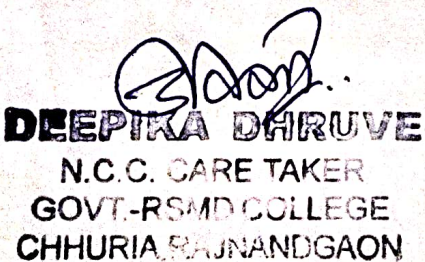 DEEPIKA DHRUVE
N.C.C. CARE TAKER
GOVT.-RSMD COLLEGE
CHHURIA, RAJNANDGAON